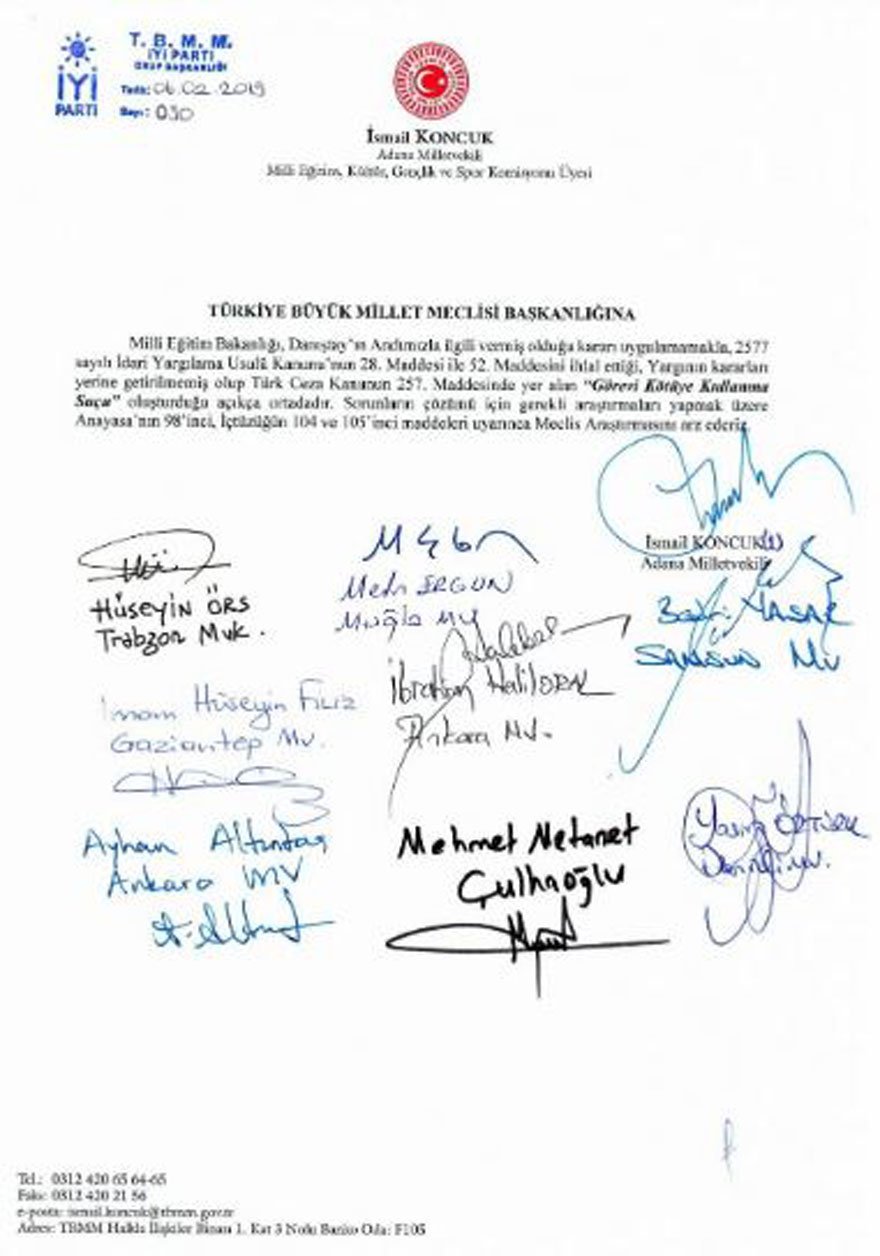 İYİ
PARTİ
T. B. M. M.
İYİ PARTİ
GRUP BAŞKANLIĞI
Tarih: 06.02.2019
Sayı: 030
İsmail KONCUK
Adana Milletvekili
Milli Eğitim, Kültür, Gençlik ve Spor Komisyonu Üyesi
TÜRKİYE BÜYÜK MİLLET MECLİSİ BAŞKANLIĞINA
Milli Eğitim Bakanlığı, Danıştay'ın Andımızla ilgili vermiş olduğu kararı uygulamamakla, 2577
sayılı İdari Yargılama Usulü Kanunu'nun 28. Maddesi ile 52. Maddesini ihlal ettiği, Yargının kararları
yerine getirilmemiş olup Türk Ceza Kanunun 257. Maddesinde yer alan "Görevi Kötüye Kullanma
Suçu" oluşturduğu açıkça ortadadır. Sorunların çözümü için gerekli araştırmaları yapmak üzere
Anayasa'nın 98'inci, İçtüzüğün 104 ve 105'inci maddeleri uyarınca Meclis Araştırmasını arz ederiz.
İsmail KONCUK(1)
Adana Milletvekili
Hüseyin ÖRS
Trabzon Mvk.
Metin ERGUN
Muğla MV
Bedri YAŞAR
SAMSUN MV
İmam Hüseyin Filiz
Gaziantep Mv.
İbrahim Halil ORAL
Ankara MV.
Ayhan Altıntaş
Ankara MV
Mehmet Metanet
Çulhaoğlu
Yasin ÖZTÜRK
Denizli MV.
Tel.: 0312 420 65 64-65
Faks: 0312 420 21 56
e-posta: ismail.koncuk@tbmm.gov.tr
Adres: TBMM Halkla İlişkiler Binası 1. Kat 3 Nolu Banko Oda: F105